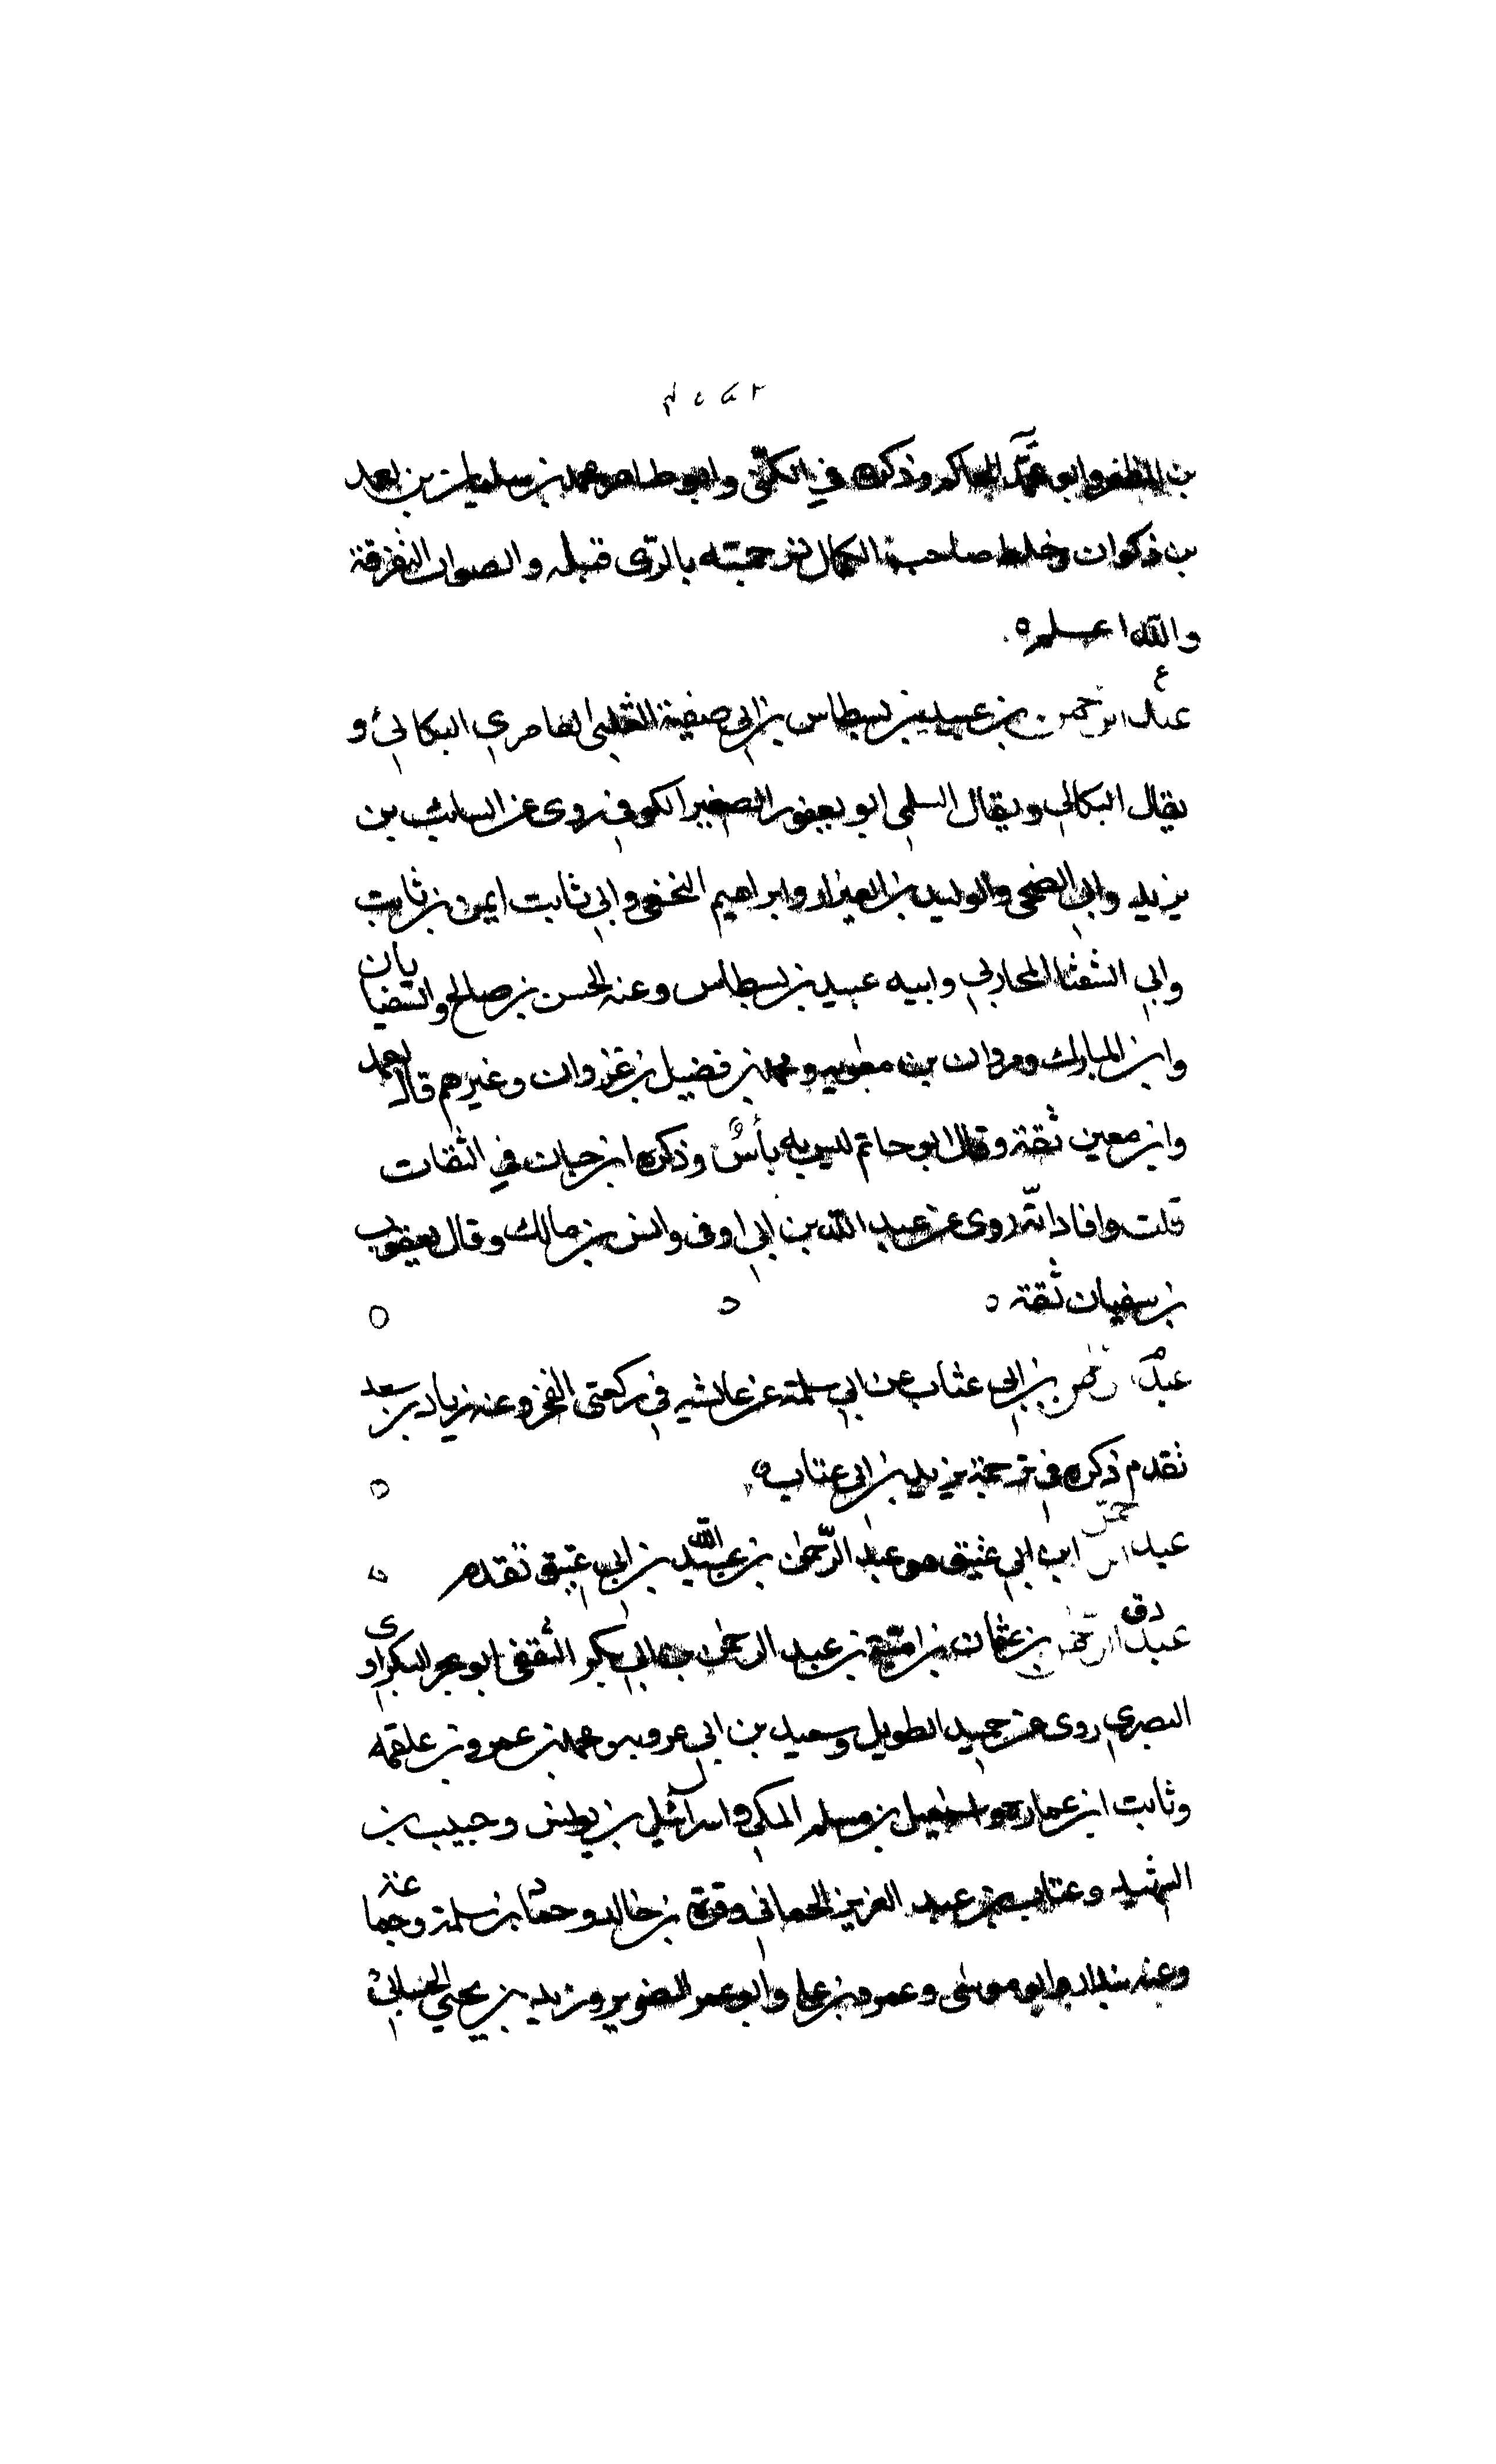 بن المظفر وابو محمد الحاكم وذكره في الكنى وابو طاهر محمد بن سليمان بن احمد
بن ذكوان وخلط صاحب الكمال ترجمته بالذى قبله والصواب التفرقة
والله اعلم ه
ع
عبد الرحمن بن عبيد بن نسطاس بن ابي صفية الثعلبي العامري البكائي و
يقال البكالي ويقال السلمي ابو يعفور الصغير الكوفي روى عن السائب بن
يزيد وابي الضحى والوليد بن العيزار وابراهيم النخعي وابي ثابت ايمن بن ثابت
وابي الشعثا المحاربي وابيه عبيد بن نسطاس وعنه الحسن بن صالح والسفيانان
وابن المبارك ومروان بن معويه ومحمد بن فضيل بن غزوان وغيرهم قال احمد
وابن معين ثقة وقال ابو حاتم ليس به بأس وذكره ابن حبان في الثقات
قلت وافاد انه روى عن عبد الله بن ابي اوفى وانس بن مالك وقال يعقوب
بن سفيان ثقة ه
عبد الرحمن بن ابي عتاب عن ابي سلمة عن عائشه في ركعتى الفجر وعنه زياد بن سعد
تقدم ذكره في ترجمة يزيد بن ابي عتاب ه
عبد الرحمن ابن ابي عتيق هو عبد الرحمن بن عبد الله بن ابي عتيق تقدم
دق
عبد الرحمن بن عثمان بن امية بن عبد الرحمن بن ابي بكر الثقفي ابو بحر البكراوى
البصري روى عن حميد الطويل وسعيد بن ابي عروبه ومحمد بن عمرو بن علقمه
وثابت ابن عماره واسمعيل بن مسلم المكي واسرائيل بن يونس وحبيب بن
الشهيد وعتاب بن عبد العزيز الحماني وقرة بن خالد وحماد بن سلمة وجماعة
وعنه بندار وابو موسى وعمرو بن علي وابو عمر الضرير ومزيد بن يحيى الحساني